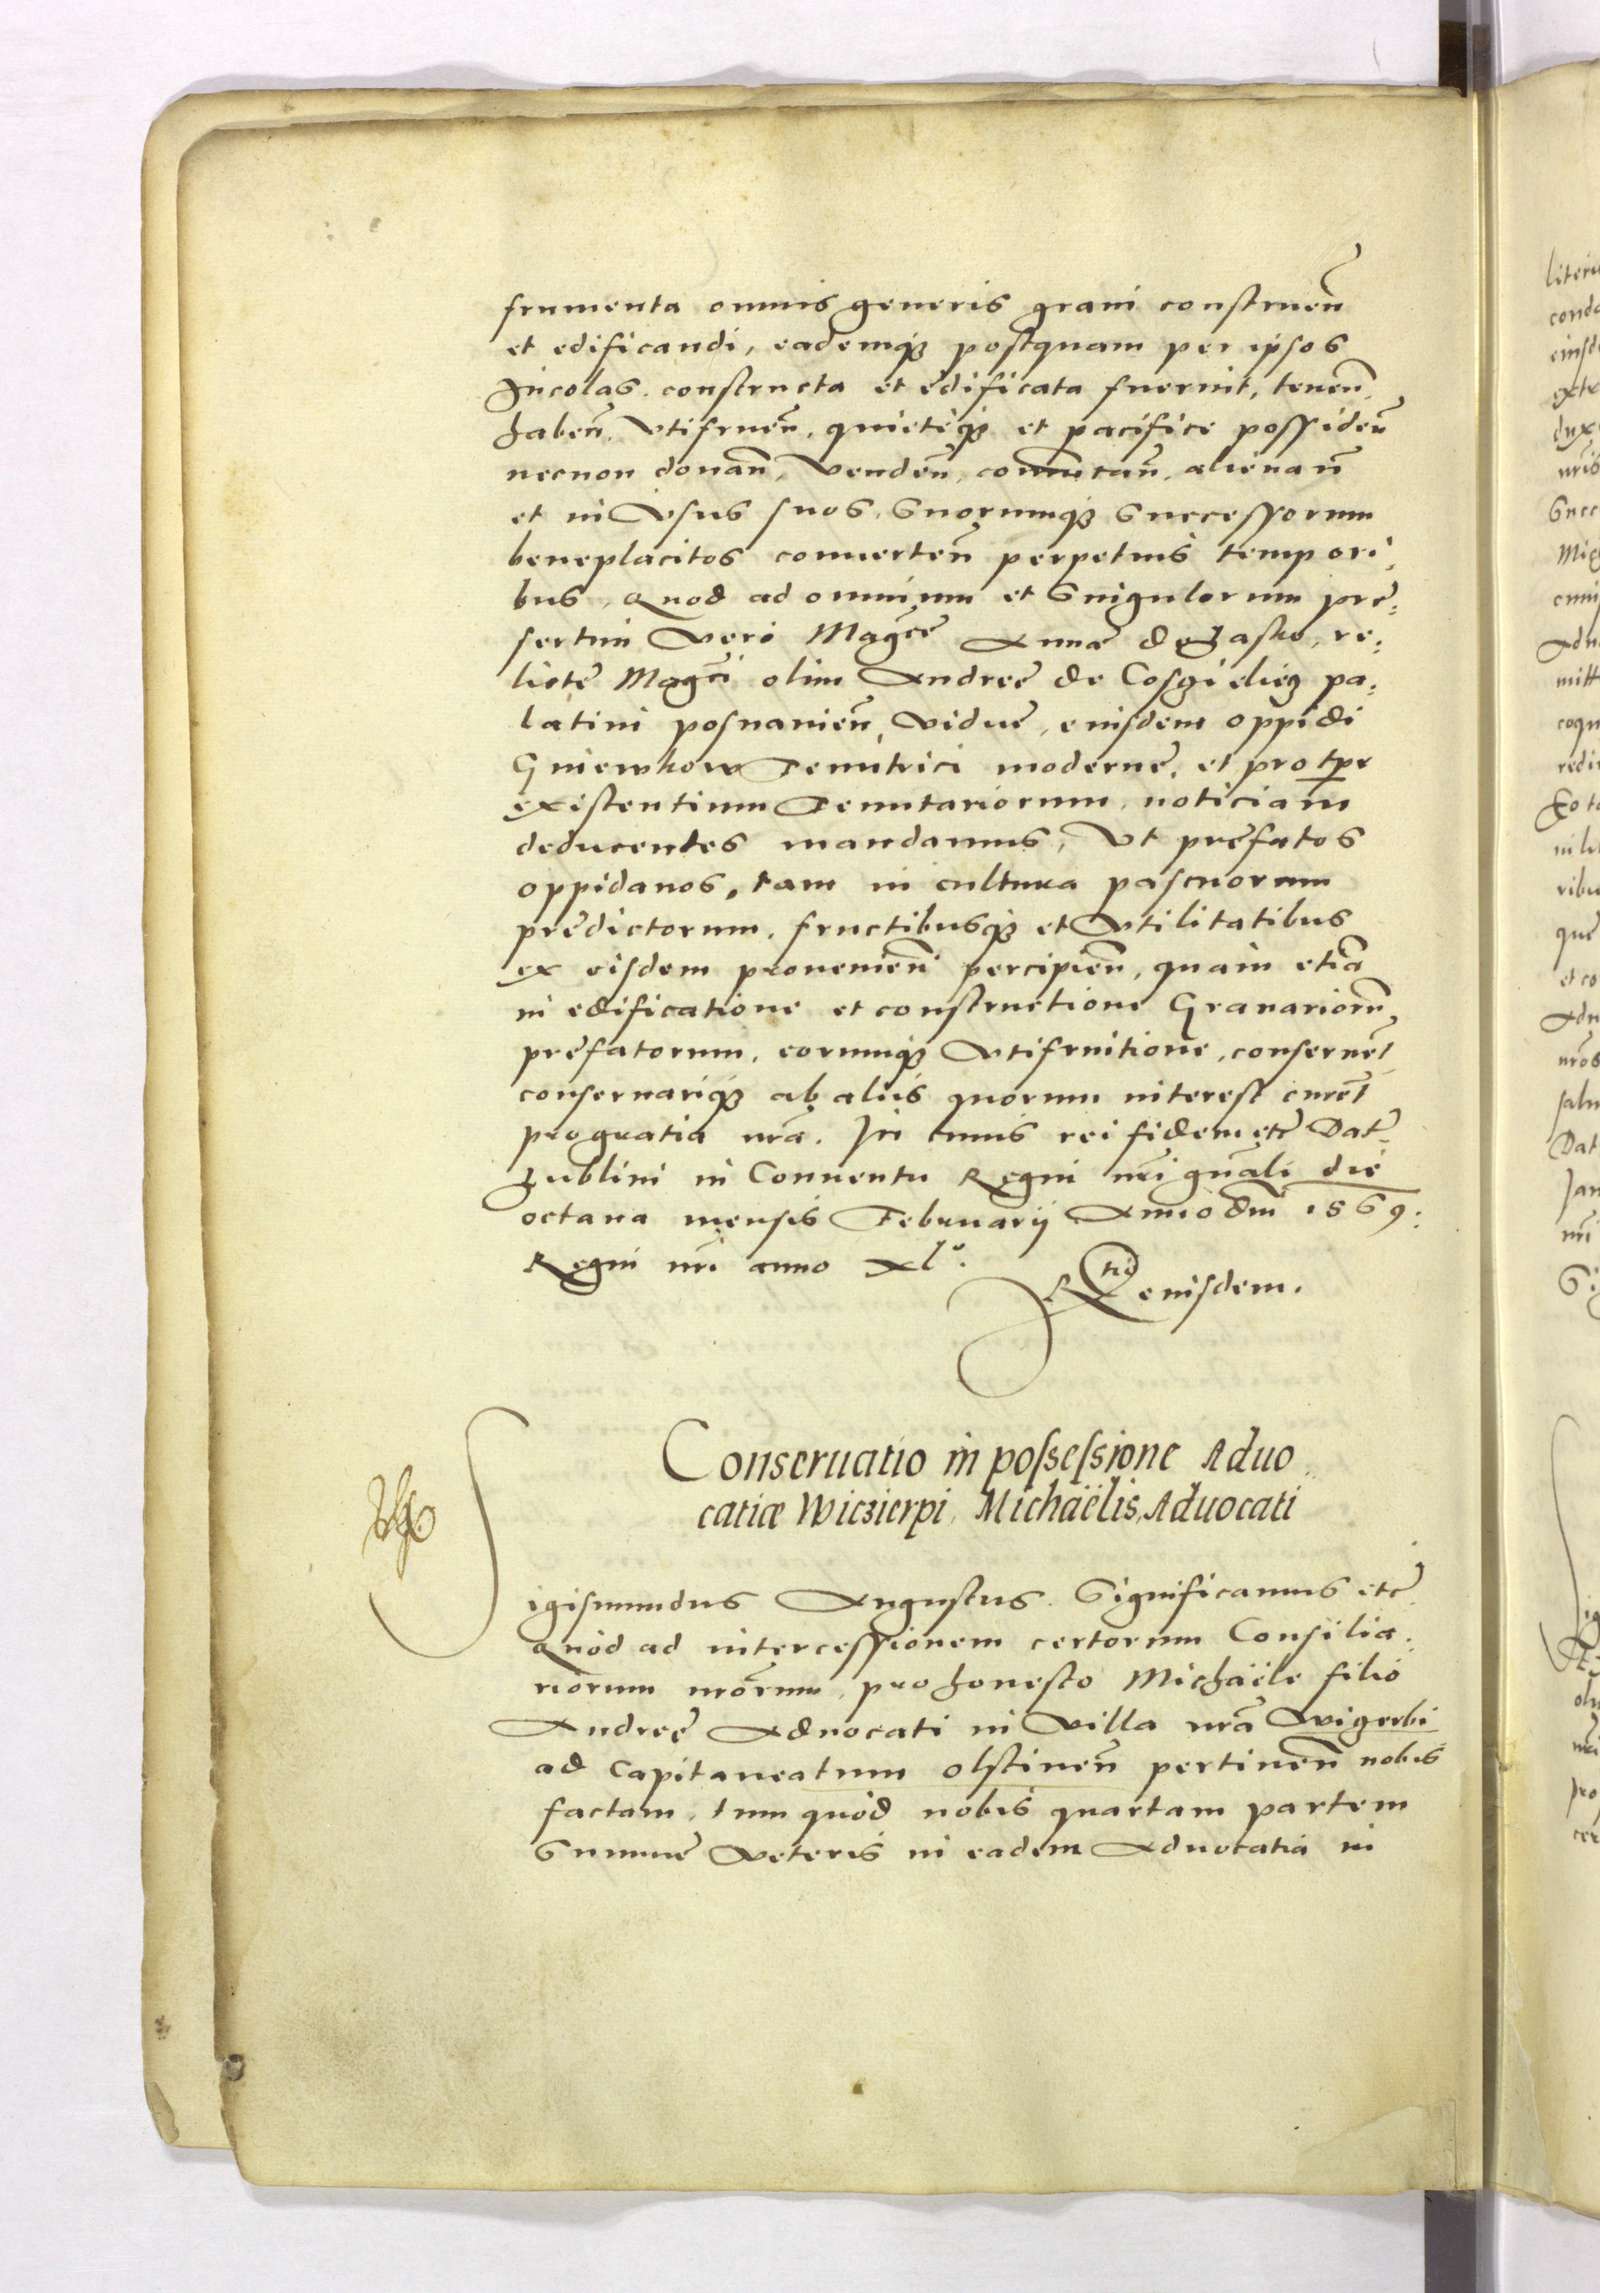 frumenta omnis generis grani construen̄
et edificandi, eademq₃ postquam per ipsos
Incolas constructa et edificata fuerint, tenen̄
haben̄, vtifruen̄, quieteq₃ et pacifice possiden̄
necnon donan̄, venden̄, com̄utan̄, alienan̄
et in vsus suos, Suorumq₃ Successorum
beneplacitos conuerten̄ perpetuis tempori,
bus, Quod ad omnium et Singulorum prę,
sertim vero Magc̄ę Annæ de Lasko, re,
lictę Magc̄i olim Andreę de Cosgielięcz pa,
latini posnanien̄, viduę, eiusdem oppidi
Gniewkow Tenutrici modernę, et pro tp̄r
existentium Tenutariorum, noticiam
deducentes mandamus, Vt pręfatos
oppidanos, tam in cultura pascuorum
prędictorum, fructibusq₃ et vtilitatibus
ex eisdem prouenien̄ percipien̄, quam etiā
in edificatione et constructione Granarior̄m,
pręfatorum, eorumq₃ vtifruitione, conseruet̄
conseruariq₃ ab aliis quorum interest curet̄
pro gratia nr̄a. In cuius rei fidem etc̄ Dat̄
Lublini in Conuentu Regni nr̄i gn̄ali die
octaua mensis Februarij Anno dn̄i 1569.
Regni nr̄i anno xl°.
Rtio eiusdem.
Conseruatio in possessione Aduo
catiæ Wiczierpi, Michaëlis, Aduocati
Sigismundus Augustus. Significamus etc̄
Quod ad intercessionem certorum Consilia,
riorum nr̄orum, pro honesto Michaële filio
Andreę Aduocati in villa nr̄a Wigerbi
ad Capitaneatum olstinen̄ pertinen̄ nobis
factam, tum quod nobis quartam partem
Summę veteris in eadem Aduocatia in